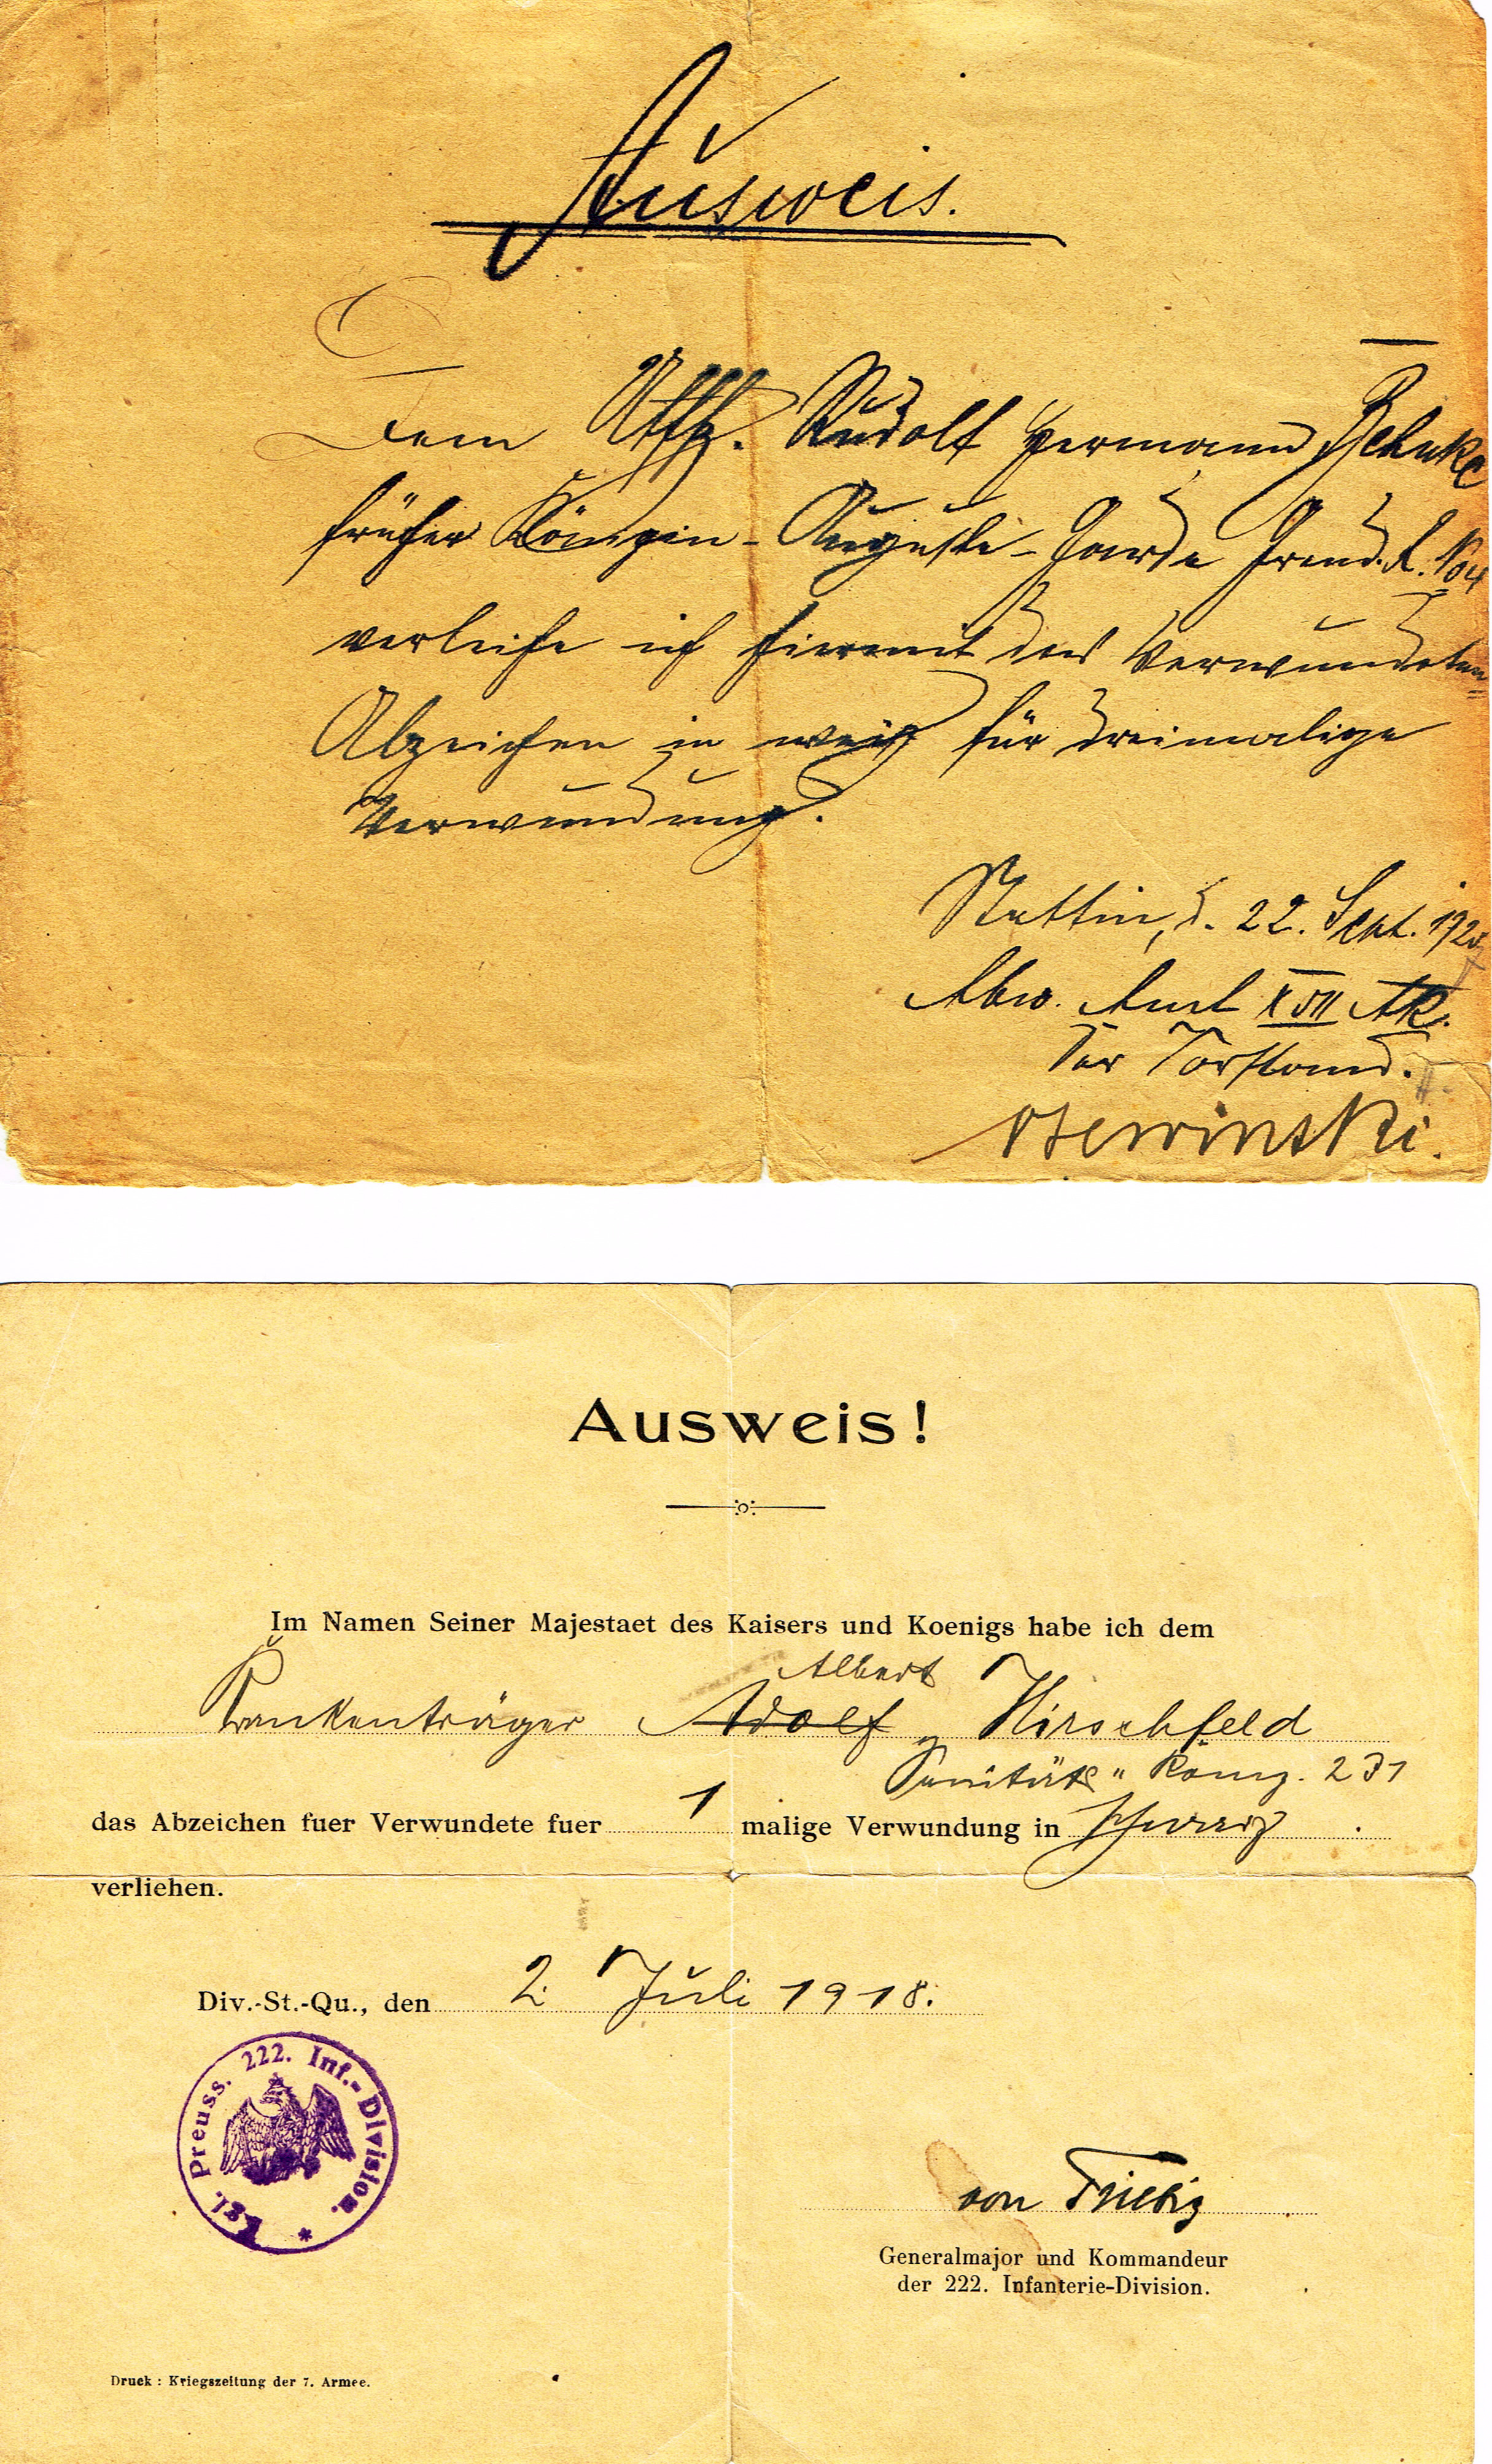 Ausweis.
Dem Utffz. Rudolf Hermann Behnke
früher Königin-Augusta-Garde Gren. R. No 4
verleihe ich hiermit das Verwundeten=
Abzeichen in weiß für dreimalige
Verwundung.
Stettin, d. 22. Sept. 1920
Abw. Amt XVII AK.
Der Vorstand.
Ausweis!
Im Namen Seiner Majestaet des Kaisers und Koenigs habe ich dem
Albert
Krankenträger Adolf Hirschfeld
Sanitäts " Komp. 231
das Abzeichen fuer Verwundete fuer 1 malige Verwundung in schwarz .
verliehen.
Div.-St.-Qu., den 2. Juli 1918.
Kgl. Preuss. 222. Inf.-Division. *
von
Generalmajor und Kommandeur
der 222. Infanterie-Division.
Druck : Kriegszeitung der 7. Armee.